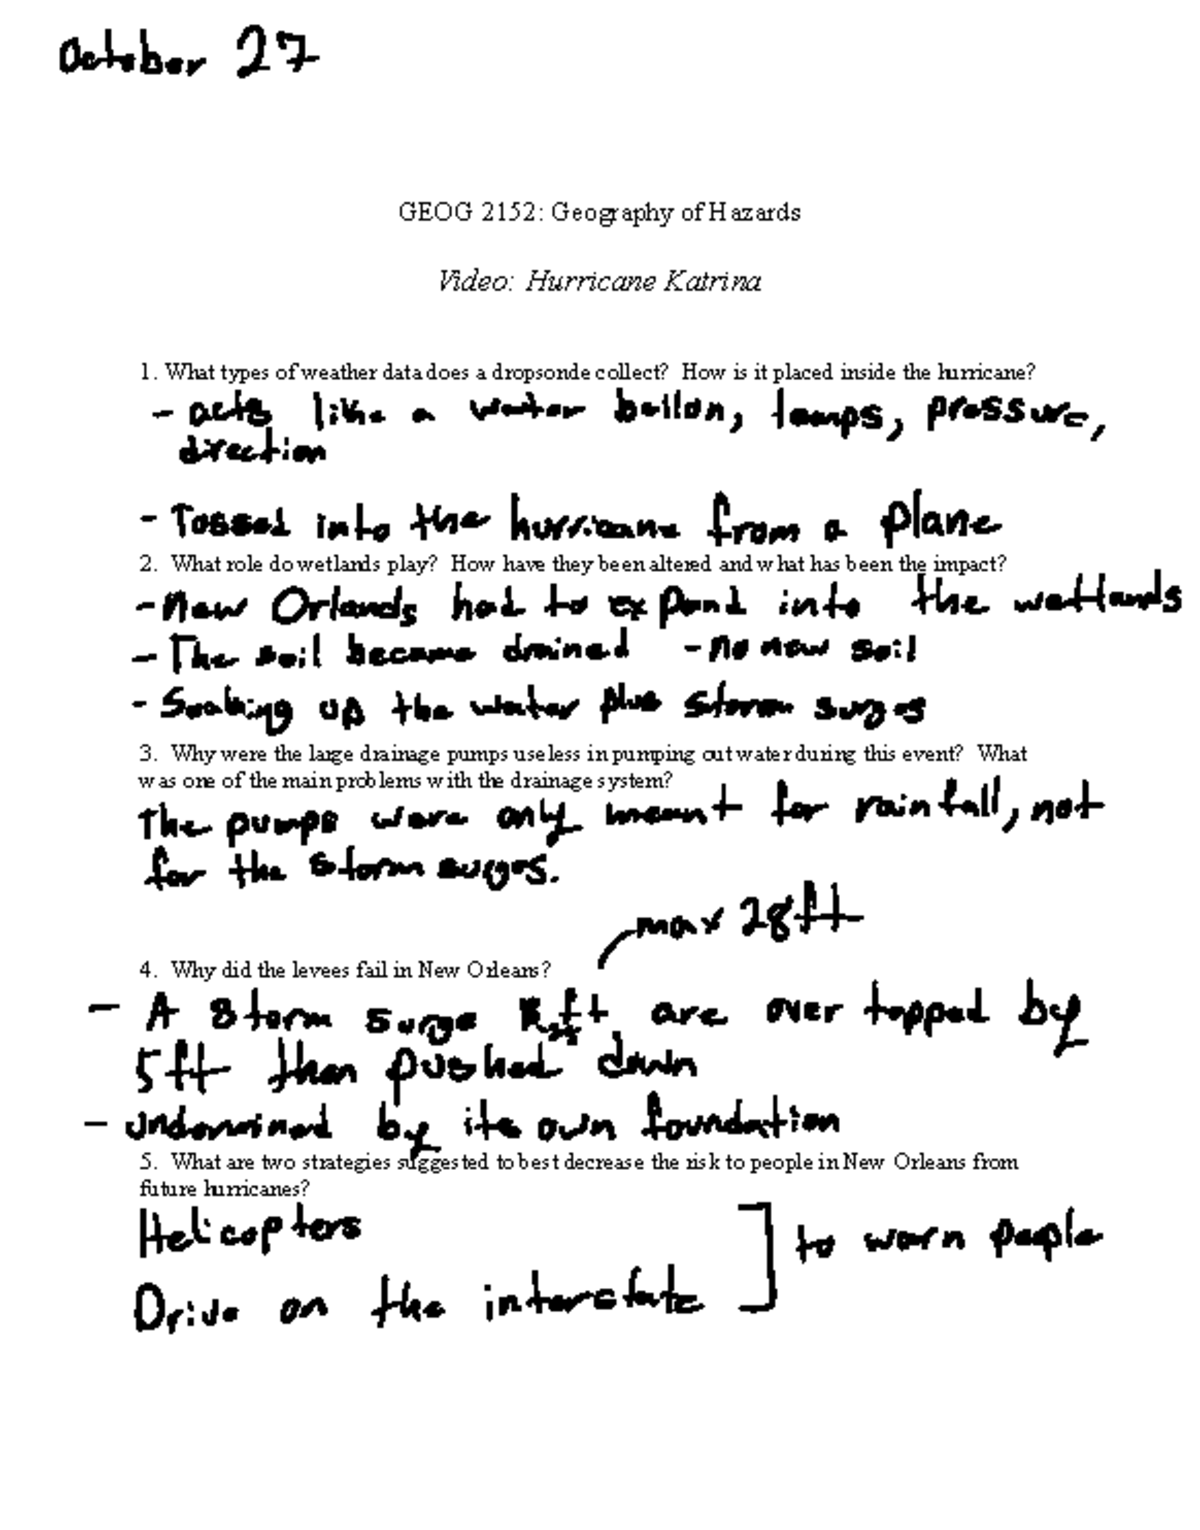 October 27
GEOG 2152: Geography of Hazards
Video: Hurricane Katrina
1. What types of weather data does a dropsonde collect? How is it placed inside the hurricane?
- acts like a water ballon, temps, pressure,
direction
- Tossed into the hurricane from a plane
2. What role do wetlands play? How have they been altered and what has been the impact?
- New Orlands had to expand into the wettlands
- The soil became drained - no new soil
- Soaking up the water plus storm surges
3. Why were the large drainage pumps useless in pumping out water during this event? What
was one of the main problems with the drainage system?
The pumps were only meant for rainfall, not
for the storm surges.
max 28ft
4. Why did the levees fail in New Orleans?
- A storm surge ft are over topped by
5ft then pushed down
- undermined by its own foundation
5. What are two strategies suggested to best decrease the risk to people in New Orleans from
future hurricanes?
Helicopters
Drive on the interstate ] to warn people